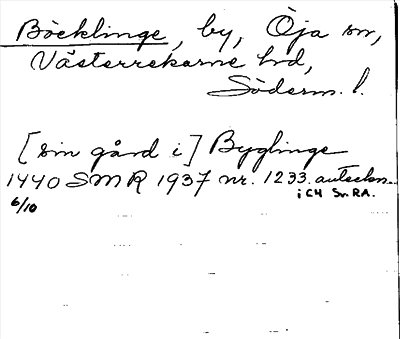 Böcklinge, by, Öja sn,
Västerrekarne hd,
Söderm. l.
[sin gård i] Byglinge
1440 SMR 1937 nr. 1233. anteckn.
6/10 i CH Sv. RA.